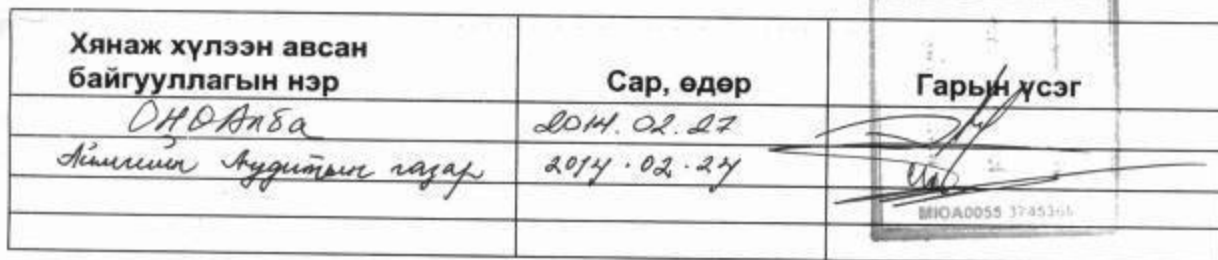 Хянаж хүлээн авсан
байгууллагын нэр
Сар, өдөр
Гарын үсэг
2014.02.27
Аймгийн Аудитын газар
2014.02.27
MIOA0055